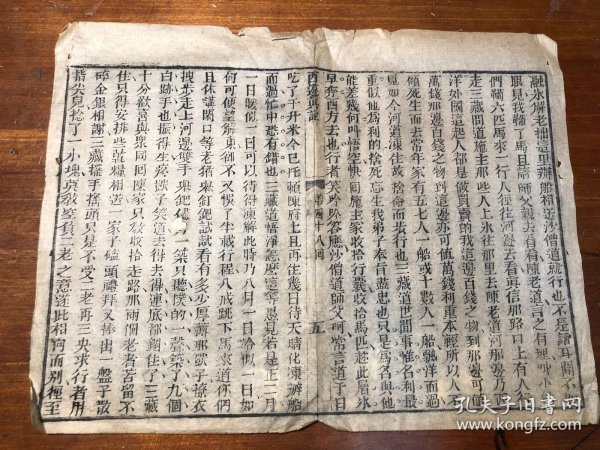 融氷解老拙這里辦船相送沙僧道就行也不是話耳聞不
眼見我鞴了馬且請師父親去看看陳老道言之有理叫小
們鞴六匹馬來一行人徑往河邊去看真個那路口上有人
走三藏問道施主那些人上氷往那里去陳老道河那邊乃西
洋外國這起人都是做買賣的我這邊百錢之物到那邊可
萬錢那邊百錢之物到這邊亦可值萬錢利重本輕所以人
傾死生而去常年家有五七人一船或十數人一船飄洋而過
見如今河道凍住故捨命而步行也三藏道世間事惟名利最
重似他為利的捨死忘生我弟子奉旨盡忠也只是為名與他
能差幾何叫悟空快回施主家收拾行囊收拾馬匹趁此層氷
早奔西方去也行者笑吟吟答應沙僧道師父呵常言道千日
西遊真詮
第四十八回
五
吃了千升米今已托賴陳府上且再住幾日待天晴化凍辦船
而過忙中恐有錯也三藏道悟淨怎麽這等愚見若是正二月
一日暖似一日可以待得凍解此時乃八月一日冷似一日如
何可便望解凍卻不又悞了半載行程八戒跳下馬來道你們
且休講閑口等老豬來釘鈀試看有多少厚薄那獃子撩衣
拽步走上河邊雙手舉鈀儘力一築只聽撲的一聲築了九個
白跡手也振得生疼獃子笑道去得去得連底都錮住了三藏
十分歡喜與衆同回陳家只教收拾走路那兩個老者苦留不
住只得安排些乾糧相送一家子磕頭禮拜又捧出一盤子散
碎金銀相謝三藏擺手搖頭只是不受二老再三央求行者用
指尖兒捻了一小塊莫教空負二老之意遂此相向而別徑至
孔夫子旧书网
book.kongfz.com